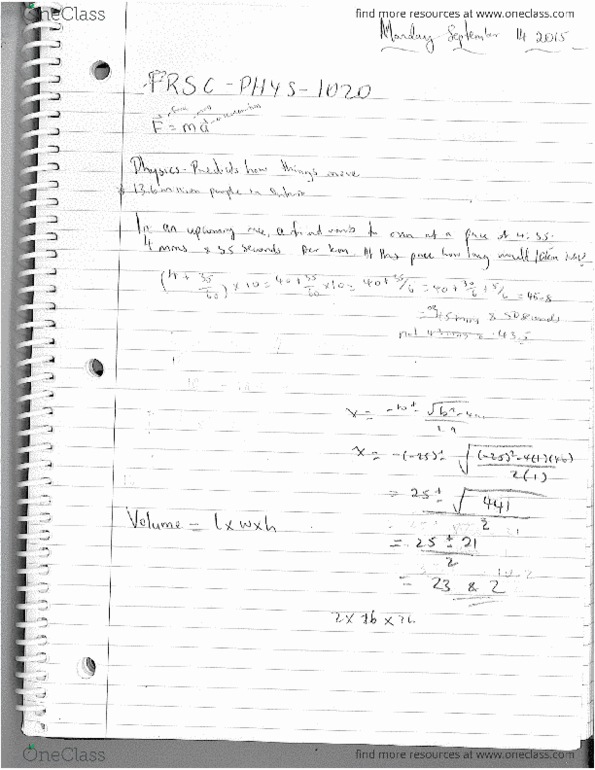 OneClass
find more resources at www.oneclass.com
Monday September 14 2015
FRSC-PHYS-1020
F = ma
Physics - Predicts how things move
13.6 million people in
In an upcoming race, a friend wants to run at a pace of 4:35.
4 mins & 35 seconds per km. At this pace how long would 10km
(4 + 35/60) × 10 = 40 + 35/60 × 10 = 40 + 35/6 = 40 + 30/6 + 5/6 = 45.8
= 45 mins & 50 seconds
not 43 mins 43.5
x =
x = -(-25) ± √(-25)²-4(1)(46)
2(1)
= 25 ± √441
2
Volume = l x w x h
= 25 ± 21
2
= 23 & 2
OneClass
find more resources at www.oneclass.com